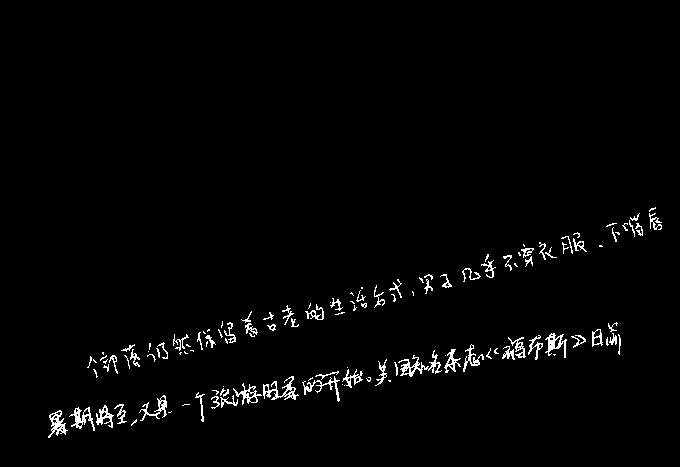 个部落仍然保留着古老的生活方式，男子几乎不穿衣服、下嘴唇
暑期将至，又是一个旅游旺季的开始。美国知名杂志《福布斯》日前